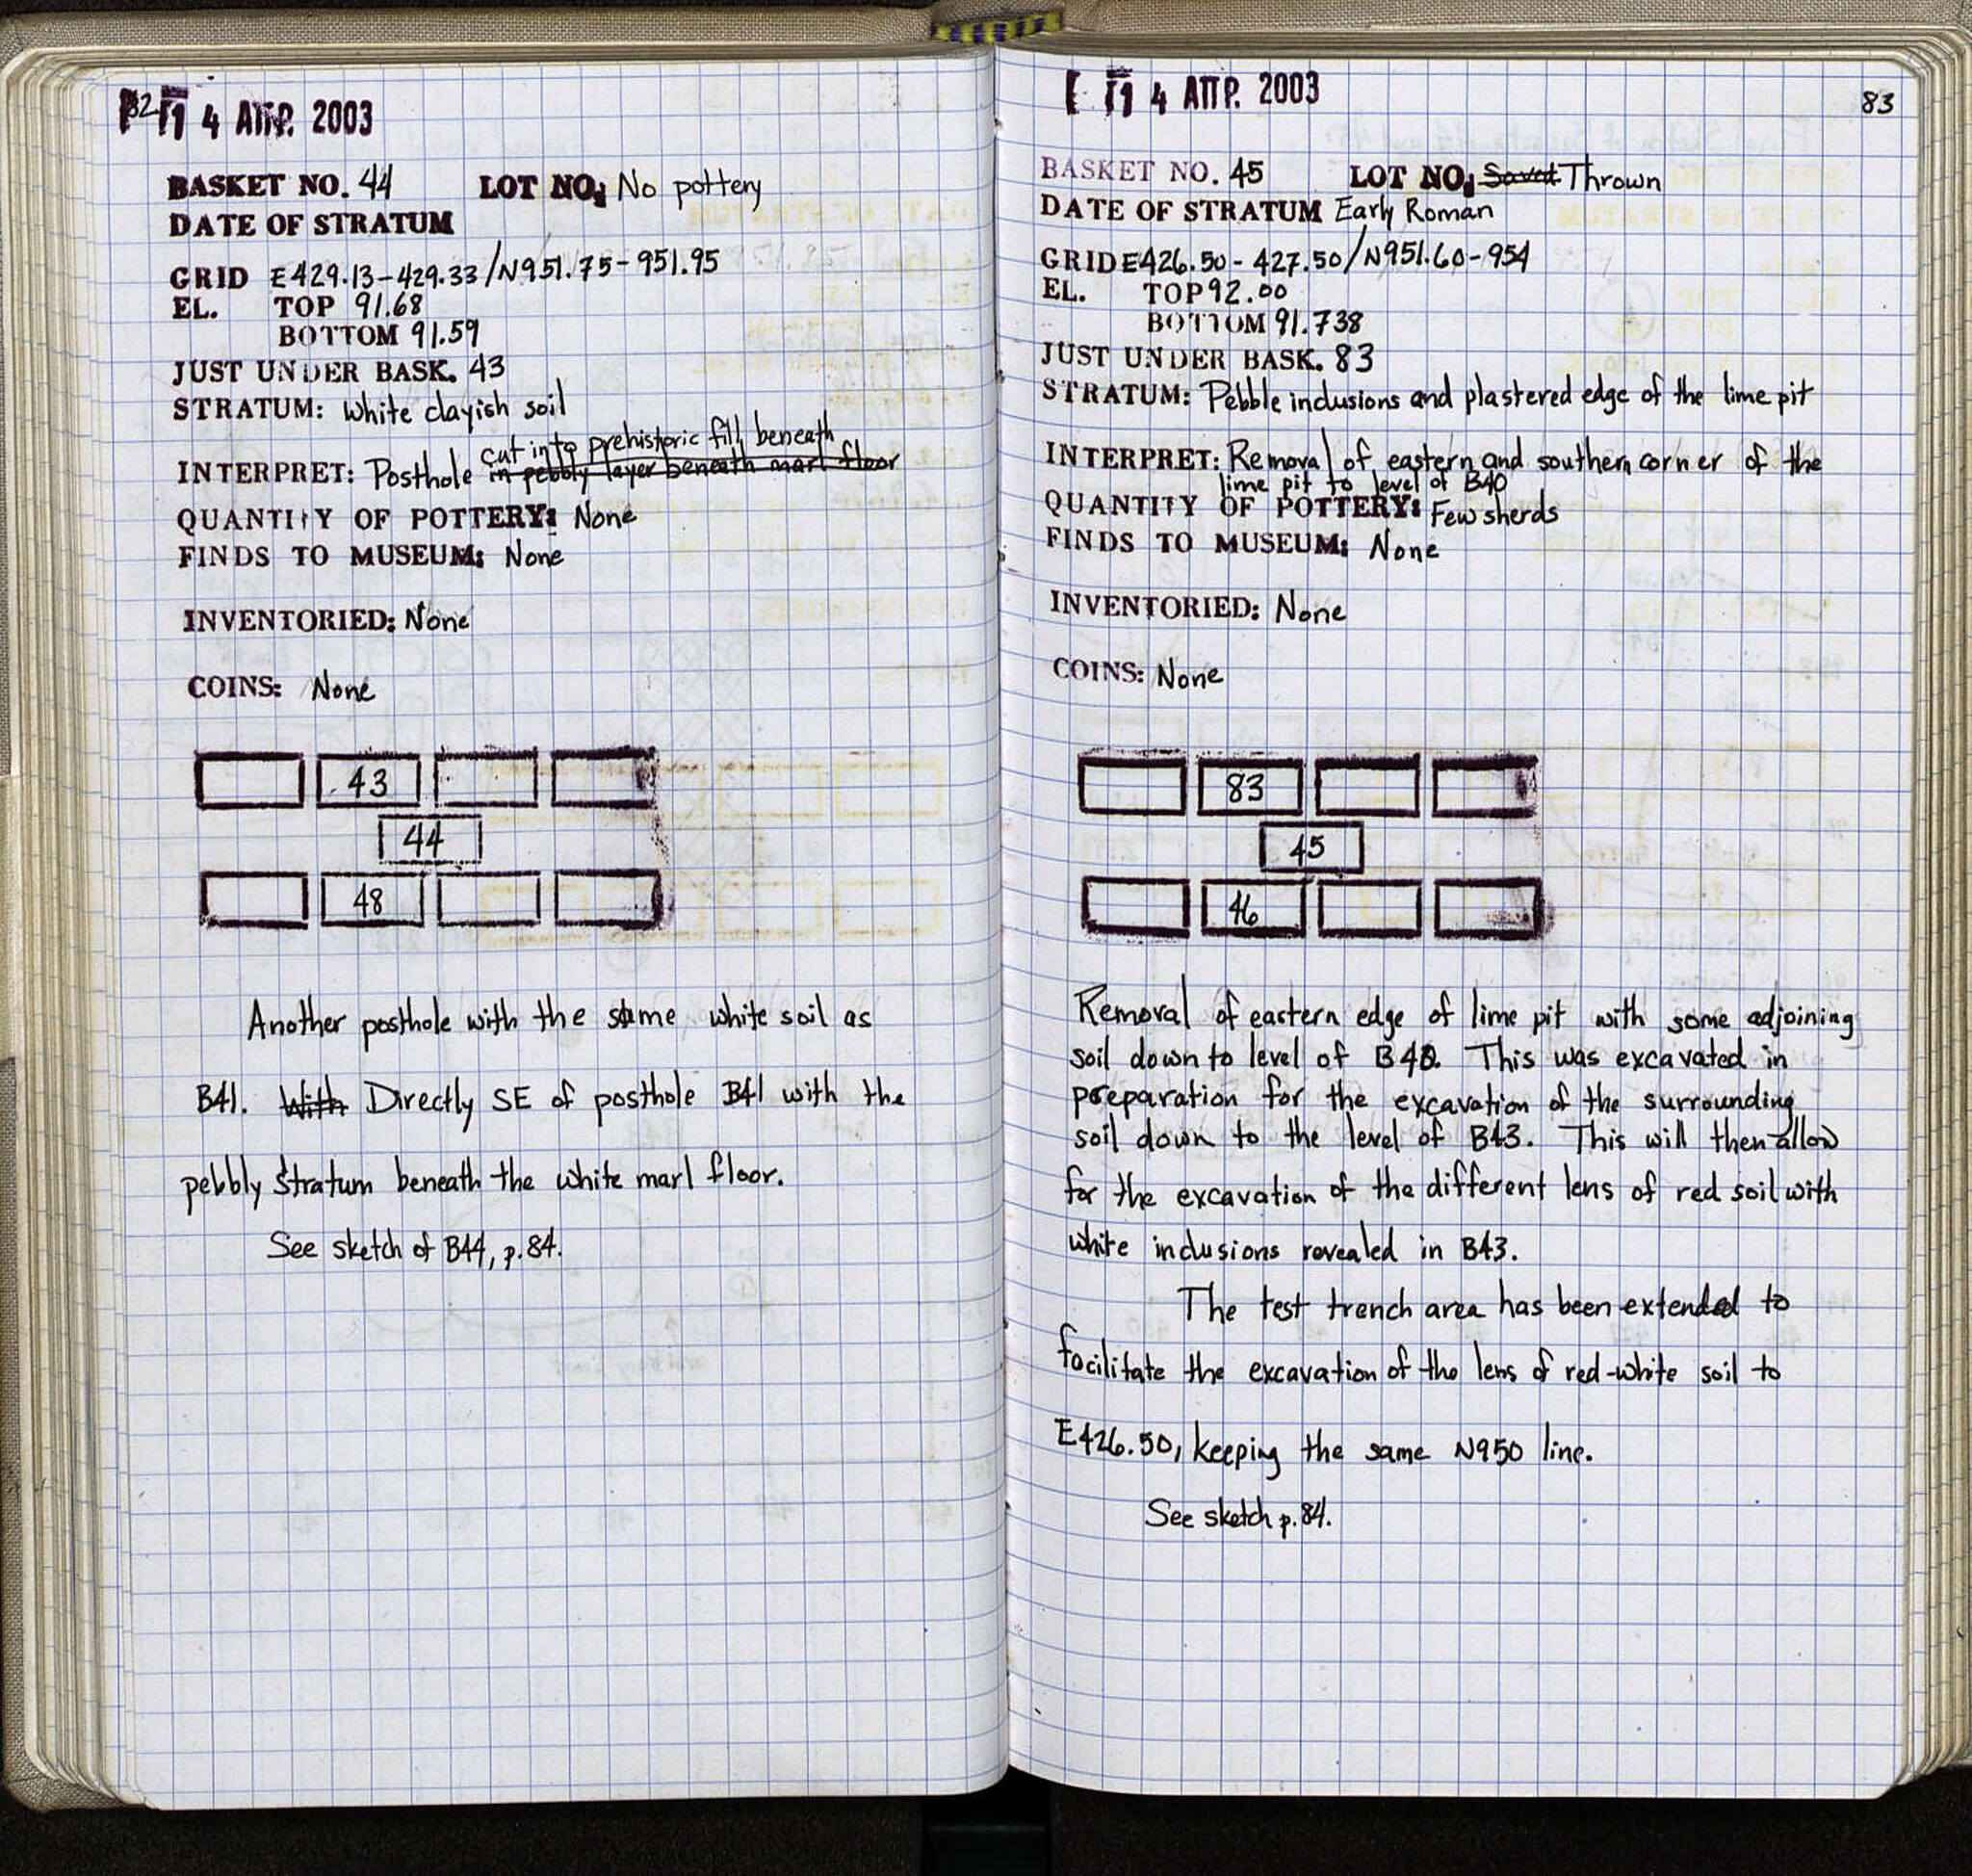 82
14 ΑΠΡ. 2003
BASKET NO. 44 LOT NO: No pottery
DATE OF STRATUM
GRID E429.13-429.33/N951.75-951.95
EL. TOP 91.68
BOTTOM 91.59
JUST UNDER BASK. 43
STRATUM: White clayish soil
cut into prehistoric fill beneath
INTERPRET: Posthole in pebbly layer beneath marl floor
QUANTITY OF POTTERY: None
FINDS TO MUSEUM: None
INVENTORIED: None
COINS: None
43
44
48
Another posthole with the same white soil as
B41. With Directly SE of posthole B41 with the
pebbly stratum beneath the white marl floor.
See sketch of B44, p.84.
14 ΑΠΡ. 2003
83
BASKET NO. 45 LOT NO: Saved Thrown
DATE OF STRATUM Early Roman
GRID E426.50-427.50/N951.60-954
EL. TOP 92.00
BOTTOM 91.738
JUST UNDER BASK. 83
STRATUM: Pebble inclusions and plastered edge of the lime pit
INTERPRET: Removal of eastern and southern corner of the
lime pit to level of B40
QUANTITY OF POTTERY: Few sherds
FINDS TO MUSEUM: None
INVENTORIED: None
COINS: None
83
45
46
Removal of eastern edge of lime pit with some adjoining
soil down to level of B40. This was excavated in
preparation for the excavation of the surrounding
soil down to the level of B43. This will then allow
for the excavation of the different lens of red soil with
white inclusions revealed in B43.
The test trench area has been extended to
facilitate the excavation of the lens of red-white soil to
E426.50, keeping the same N950 line.
See sketch p.84.